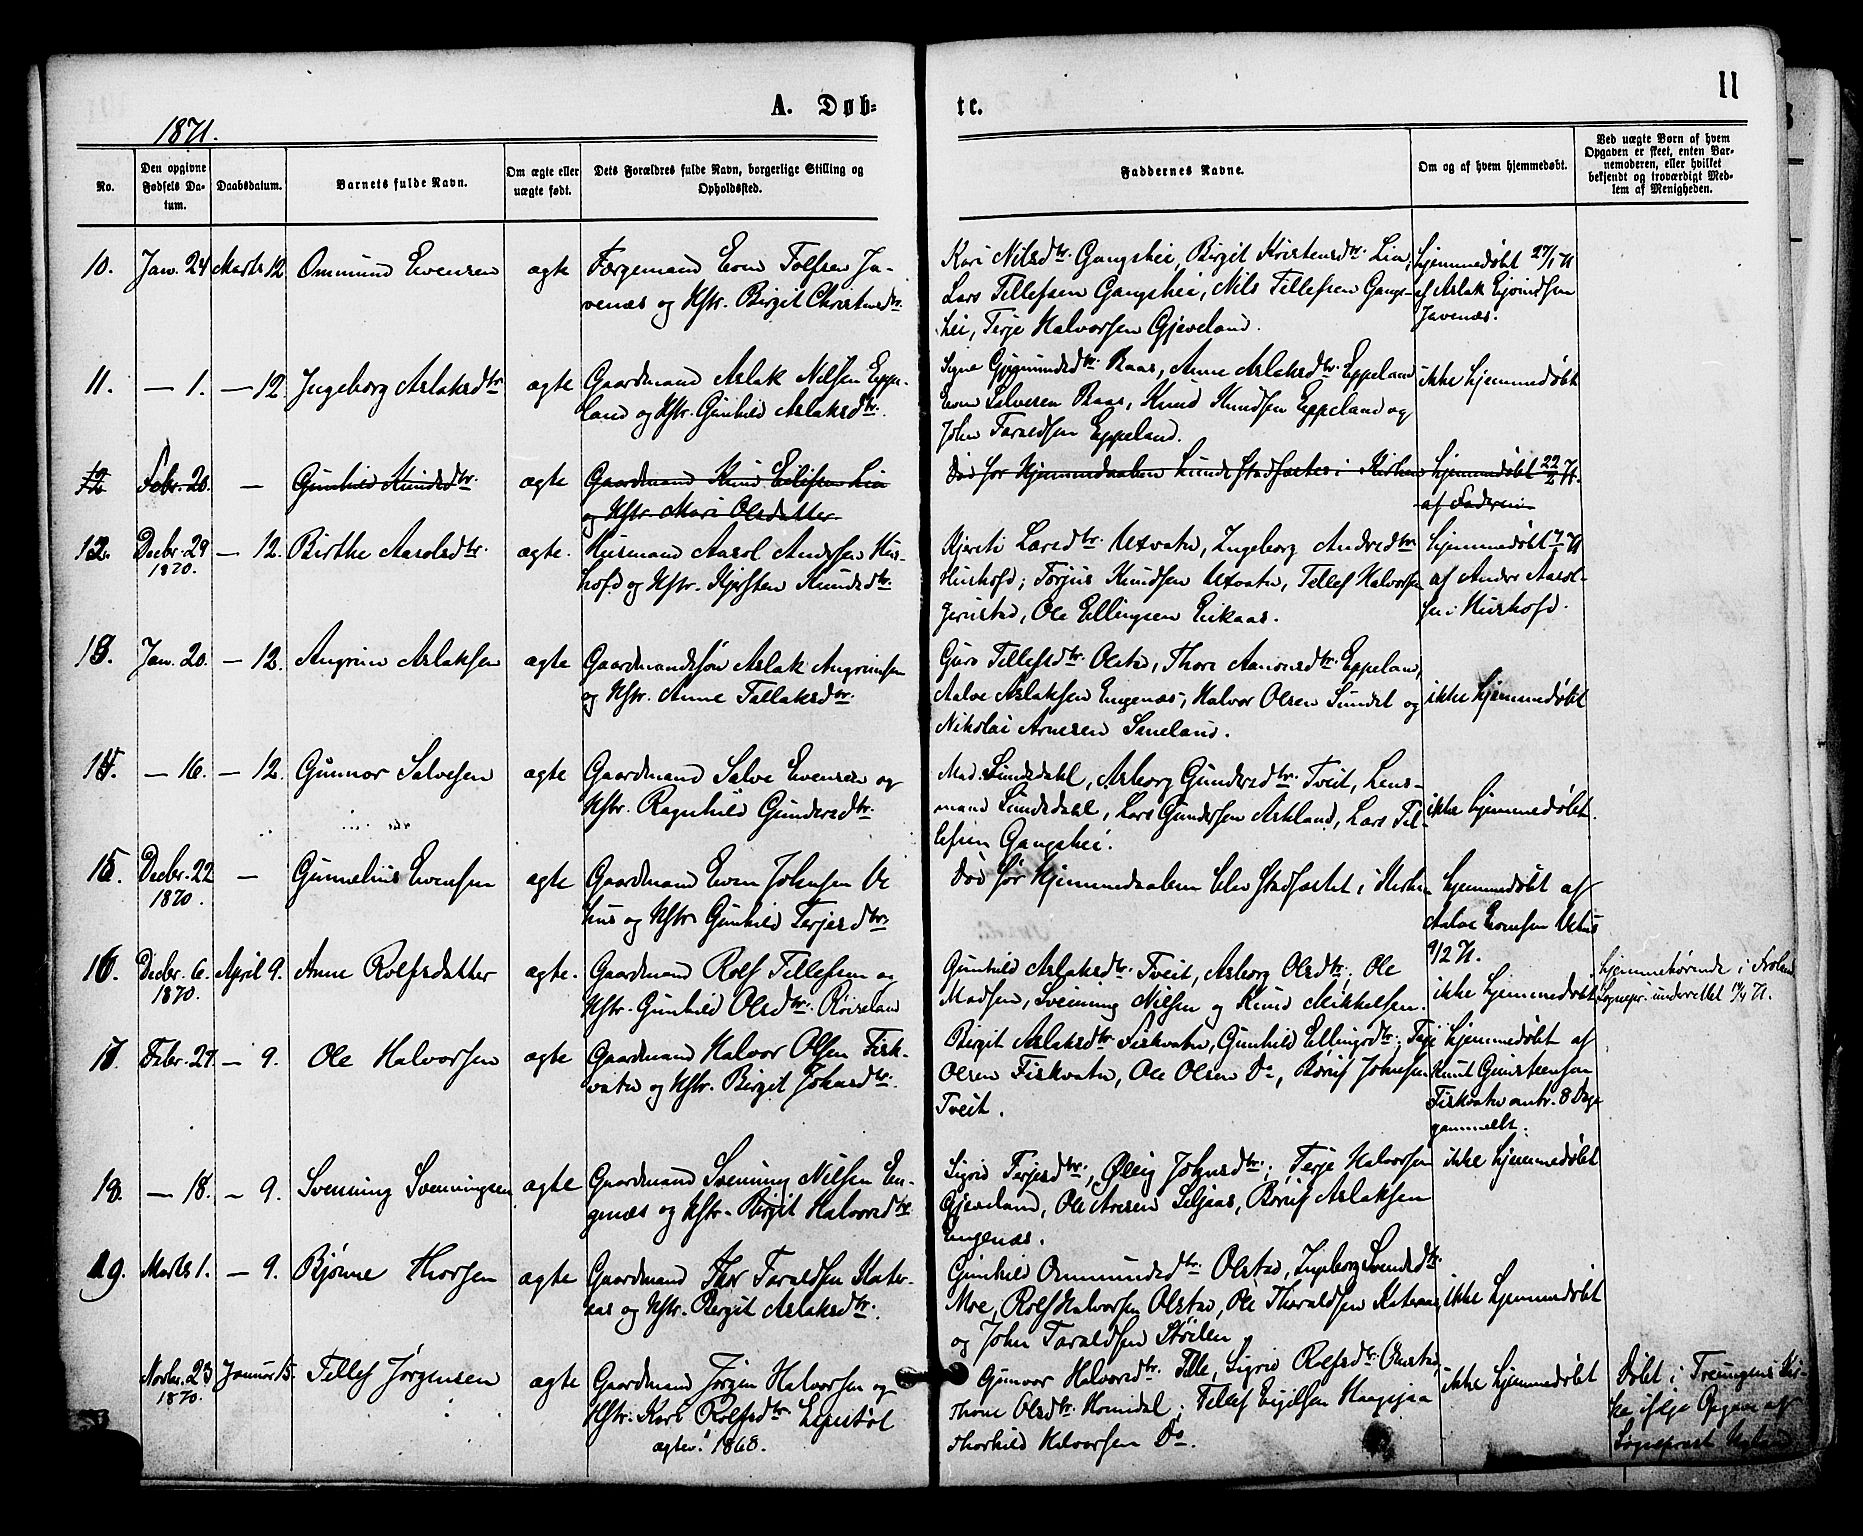 11
A. Døb-
te.
1871.
No.
Den opgivne Fødsels Da-tum.
Daabsdatum.
Barnets fulde Navn.
Om ægte eller uægte født.
Dets Forældres fulde Navn, borgerlige Stilling og Opholdssted.
Faddernes Navne.
Om og af hvem hjemmedøbt.
Ved uægte Børn af hvem Opgaven er skeet, enten Bar-nemoderen, eller hvilket bekjendt og troværdigt Med-lem af Menigheden.
10. Jan. 24 Marts 12 Ommund Evensen ægte Færgemand Even Tolfsen Ja-
venæs og Hstr. Birgit Christensdtr.
Kari Nilsdtr. Gangshei, Birgit Kristensdtr. Lia,
Lars Tellefsen Gangshei, Nils Tellefsen Gangs-
hei, Terje Halvorsen Gjeveland.
hjemmedøbt 27/1 71
af Aslak Eivindsen
Javenæs.
11. — 1. — 12. Ingeborg Aslaksdtr ægte Gaardmand Aslak Nilsen Eppe-
land og Hstr. Gunhild Aslaksdtr.
Signe Baas, Anne Aslaksdtr. Eppeland
Even Salvesen Baas, Knud Knudsen Eppeland og
John Taraldsen Eppeland.
ikke hjemmedøbt
12 Febr. 20. — Gunhild Knudsdtr. ægte Gaardmand Knud Eilifsen Lia
og Hstr. Mari Olsdatter
Død før Hjemmedaaben kunde stadfæstes i Kirken
hjemmedøbt 22/2 71.
af Faderen
12. Decbr. 29 — 12. Birthe Aasolsdtr. ægte. Husmand Aasol Andersen Hus-
1870.
hofd og Hstr. Kjersten Knudsdtr
Kjersti Larsdtr. Uxvatn, Ingeborg Andersdtr
Hushofd; Torjus Knudsen Uxvatn, Tellef Halvorsen
Jerustad, Ole Ellingsen Eikaas.
hjemmedøbt 71
af Anders Aasol-
sen i Hushofd.
13. Jan. 20. — 12. Angrim Aslaksen ægte Gaardmandssøn Aslak Angrimsen
og Hstr. Anne Tallaksdtr.
Guro Tellefsdtr. Olstad, Thore Aanonsdtr. Eppeland,
Aalve Aslaksen Engenæs, Halvor Olsen Sundet og
Nikolai Arnesen Smeland.
ikke hjemmedøbt
14. — 16. — 12. Gunnar Salvesen ægte Gaardmand Salve Evensen og
Hstr. Ragnhild Gundersdtr.
Mad. Sundsdahl, Asborg Gundersdtr. Tveit, Lens-
mand Sundsdahl, Lars Gundersen Askland, Lars Tel-
lefsen Gangshei.
ikke hjemmedøbt.
15. Decbr. 22 — Gunnelius Evensen ægte Gaardmand Even Johnsen Ve
1870.
hus og Hstr. Gunhild Terjesdtr.
Død før Hjemmedaaben blev stadfæstet i Kirken
hjemmedøbt af
Aalve Evensen Vehus
9/2 71.
16. Decbr. 6. April 9. Anne Rolfsdatter ægte. Gaardmand Rolf Tellefsen og
1870.
Hstr. Gunhild Olsdtr. Røiseland
Gunhild Aslaksdtr. Tveit, Asborg Olsdtr., Ole
Madsen, Svenning Nilsen og Knud Mikkelsen.
ikke hjemmedøbt
hjemmehørende i Froland
Sognepr. underrettet 71.
17. Febr. 27. — 9. Ole Halvorsen ægte Gaardmand Halvor Olsen Fisk-
vatn og Hstr. Birgit Johnsdtr.
Birgit Aslaksdtr Fiskvatn, Gunhild Ellingsdtr., Terje
Olsen Fiskvatn, Ole Olsen Do, Børuf Johnsen
Tveit.
hjemmedøbt af
Knut Gunsteensen
Fiskvatn omtr. 8 Dage
gammelt.
18. — 18. — 9. Svenning Svenningsen ægte Gaardmand Svenning Nilsen En-
genæs og Hstr. Birgit Halvorsdtr.
Sigrid Terjesdtr., Øleig Johnsdtr., Terje Halvorsen
Gjeveland, Ole Arnesen Seljaas, Børuf Aslaksen
Engenæs.
ikke hjemmedøbt
19. Marts 1. — 9. Bjønne Thorsen ægte Gaardmand Thor Taraldsen Kater-
aas og Hstr. Birgit Aslaksdtr.
Gunhild Ommundsdtr. Olstad, Ingeborg Svendsdtr.
Moe, Rolf Halvorsen Olstad, Ole Thoraldsen Kateraas,
og John Taraldsen Stølen
ikke hjemmedøbt
Novbr. 23 Januar 15. Tellef Jørgensen ægte Gaardmand Jørgen Halvorsen og
1870.
Hstr. Kari Rolfsdtr. Lipestøl
ægtev. 1868.
Gunvor Halvorsdtr. Tille, Sigrid Rolfsdtr. Onstad,
Thone Olsdtr. Homdal, Tellef Eigilsen Haugsjaa
Thorkild Halvorsen Do.
ikke hjemmedøbt
Døbt i Treungens Kir-
ke ifølge Opgave af
Sognepræst